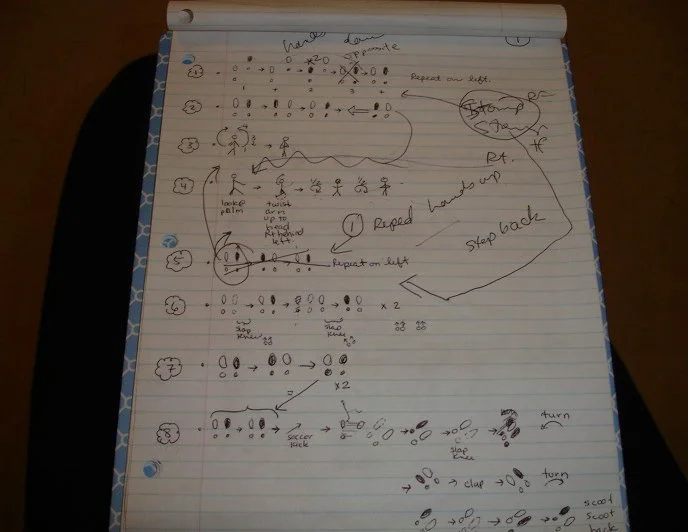 hands down
1
x2
opposite
1 Repeat on left.
1 + 2 3 +
2
Stamp
3
Rt.
4
look@ palm
twist arm up to head Rt behind left
1 Reped hands up
step back
5 Repeat on left
6 x 2
slap knee
slap knee
7
x2
=
8
soccer kick
slap knee
turn
clap
turn
scoot
scoot
back